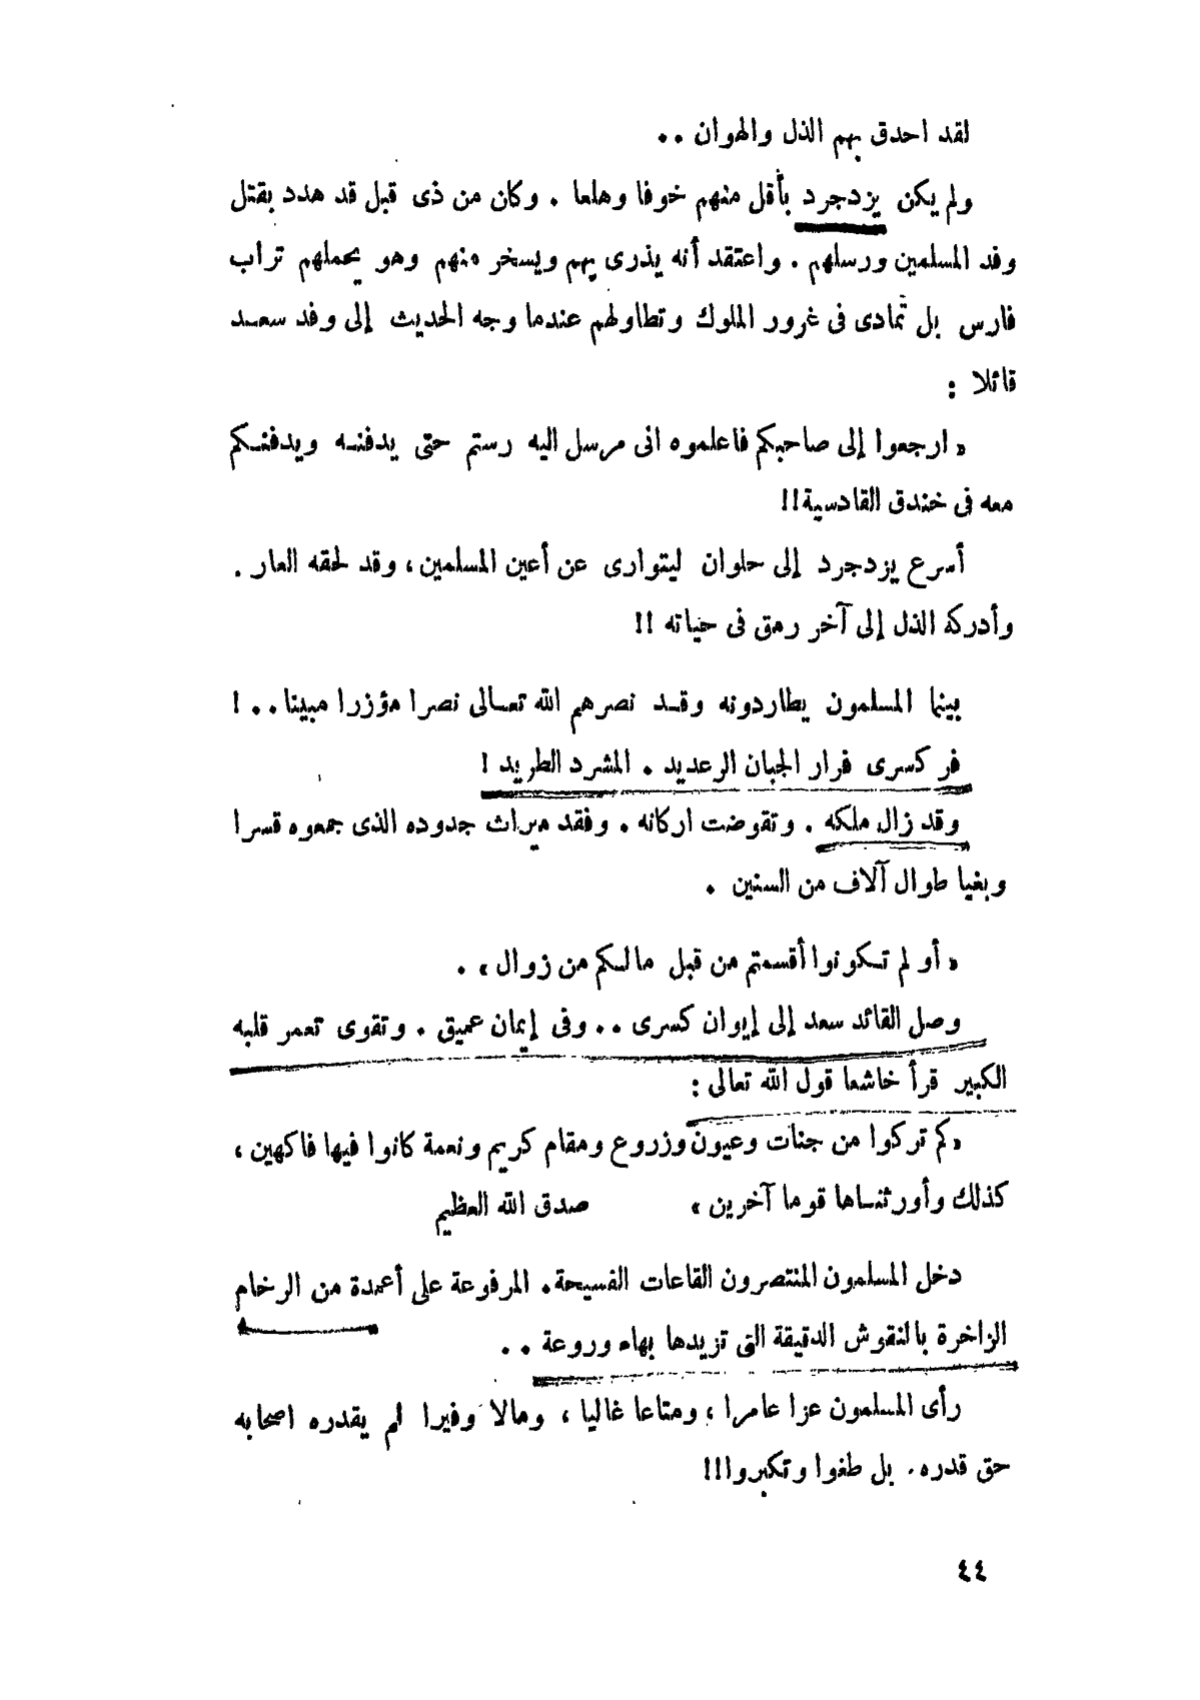 لقد احدق بهم الذل والهوان ..
ولم يكن يزدجرد بأقل منهم خوفا وهلعا . وكان من ذى قبل قد هدد بقتل
وفد المسلمين ورسلهم . واعتقد أنه يذرى بهم ويسخر منهم وهو يحملهم تراب
فارس بل تمادى فى غرور الملوك وتطاولهم عندما وجه الحديث إلى وفد سعد
قائلا :
« ارجعوا إلى صاحبكم فاعلموه انى مرسل اليه رستم حتى يدفنه ويدفنكم
معه فى خندق القادسية!!
أسرع يزدجرد إلى حلوان ليتوارى عن أعين المسلمين، وقد لحقه العار .
وأدركه الذل إلى آخر رمق فى حياته !!
بينما المسلمون يطاردونه وقد نصرهم الله تعالى نصرا مؤزرا مبينا . . !
فر كسرى فرار الجبان الرعديد . المشرد الطريد !
وقد زال ملكه . وتقوضت اركانه . وفقد ميراث جدوده الذى جمعوه قسرا
وبغيا طوال آلاف من السنين .
« أو لم تكونوا أقسمتم من قبل مالكم من زوال » .
وصل القائد سعد إلى إيوان كسرى .. وفى إيمان عميق . وتقوى تعمر قلبه
الكبير قرأ خاشعا قول الله تعالى :
« كم تركوا من جنات وعيون وزروع ومقام كريم ونعمة كانوا فيها فاكهين ،
كذلك وأورثنساها قوما آخرين » صدق الله العظيم
دخل المسلمون المنتصرون القاعات الفسيحة . المرفوعة على أعمدة من الرخام
الزاخرة بالنقوش الدقيقة التى تزيدها بهاء وروعة . .
رأى المسلمون عزا عامرا ، ومتاعا غاليا ، ومالا وفيرا لم يقدره اصحابه
حق قدره . بل طغوا وتكبروا!!!
٤٤